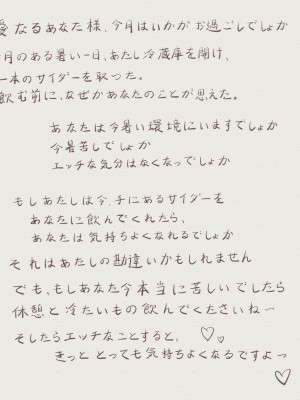 愛なるあなた様、今月はいかがお過ごしでしょか
月のある暑い一日、あたし冷蔵庫を開け、
一本のサイダーを取った。
飲む前に、なぜかあなたのことが思えた。
あなたは今暑い環境にいますでしょか
今暑苦しでしょか
エッチな気分はなくなっでしょか
もしあたしは今、手にあるサイダーを
あなたに飲んでくれたら、
あなたは気持ちよくなれるでしょか
それはあたしの勘違いかもしれません
でも、もしあなた今本当に苦しいでしたら
休憩と冷たいもの飲んでくださいねー
そしたらエッチなことすると、♡♡
きっととっても気持ちよくなるですよー
♡